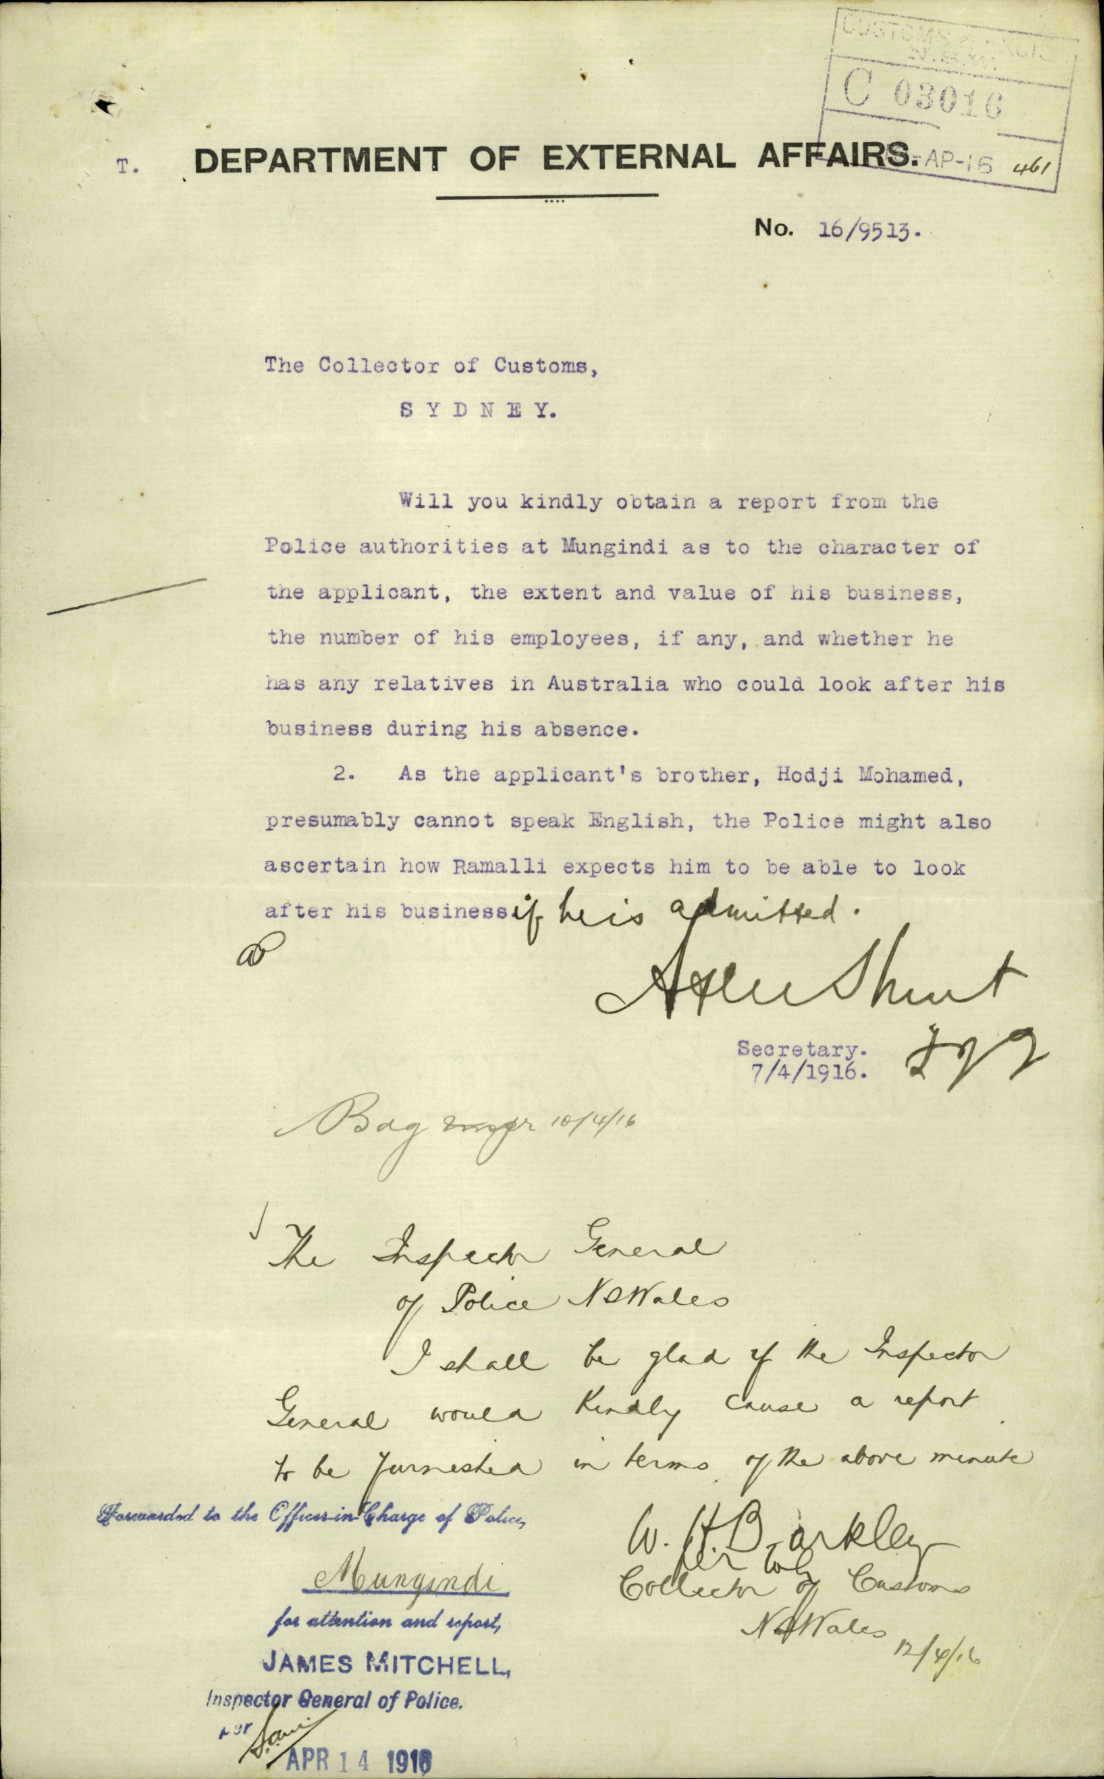 CUSTOMS
C 03016
AP-16 461
T. DEPARTMENT OF EXTERNAL AFFAIRS.
No. 16/9513.
The Collector of Customs,
SYDNEY.
Will you kindly obtain a report from the
Police authorities at Mungindi as to the character of
the applicant, the extent and value of his business,
the number of his employees, if any, and whether he
has any relatives in Australia who could look after his
business during his absence.
2. As the applicant's brother, Hodji Mohamed,
presumably cannot speak English, the Police might also
ascertain how Ramalli expects him to be able to look
after his business if he is admitted.
Atlee Hunt
Secretary.
7/4/1916.
Bag 10/4/16
The Inspector General
of Police NSWales
I shall be glad if the Inspector
General would kindly cause a report
to be furnished in terms of the above minute
W. H. Barkley
per
Collector of Customs
NSWales
12/4/16
Forwarded to the Officer-in-Charge of Police,
Mungindi
for attention and report,
JAMES MITCHELL,
Inspector General of Police.
per
APR 14 1916